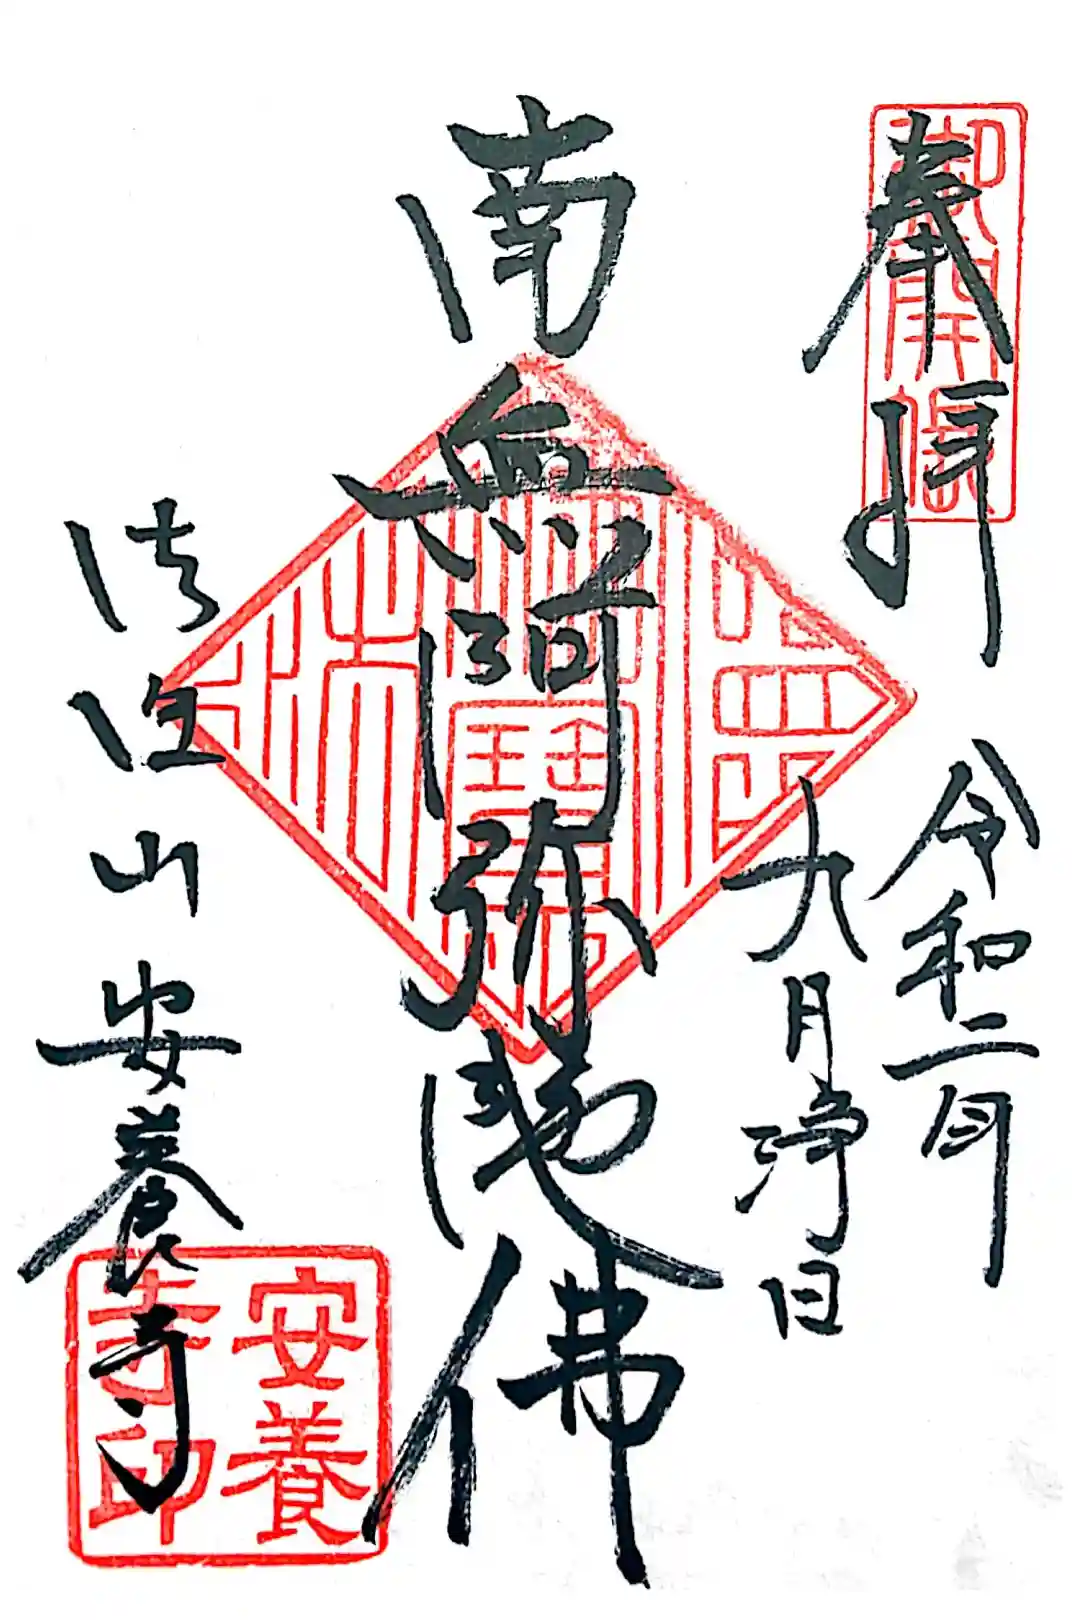 御開帳
奉拝
令和二年
九月浄日
南無阿弥陀佛
法山安養寺
安養
寺印